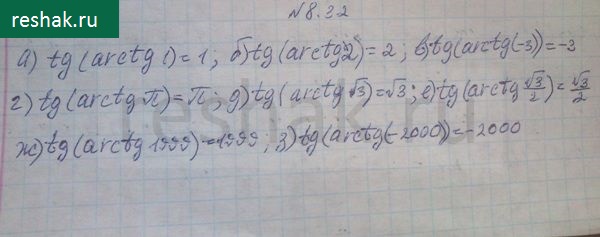 reshak.ru
№8.32
а) tg(arctg 1) = 1; б) tg(arctg 2) = 2; в) tg(arctg(-3)) = -3
г) tg(arctg π) = π; д) tg(arctg √3) = √3; е) tg(arctg √3/2) = √3/2
ж) tg(arctg 1999) = 1999; з) tg(arctg(-2000)) = -2000
reshak.ru